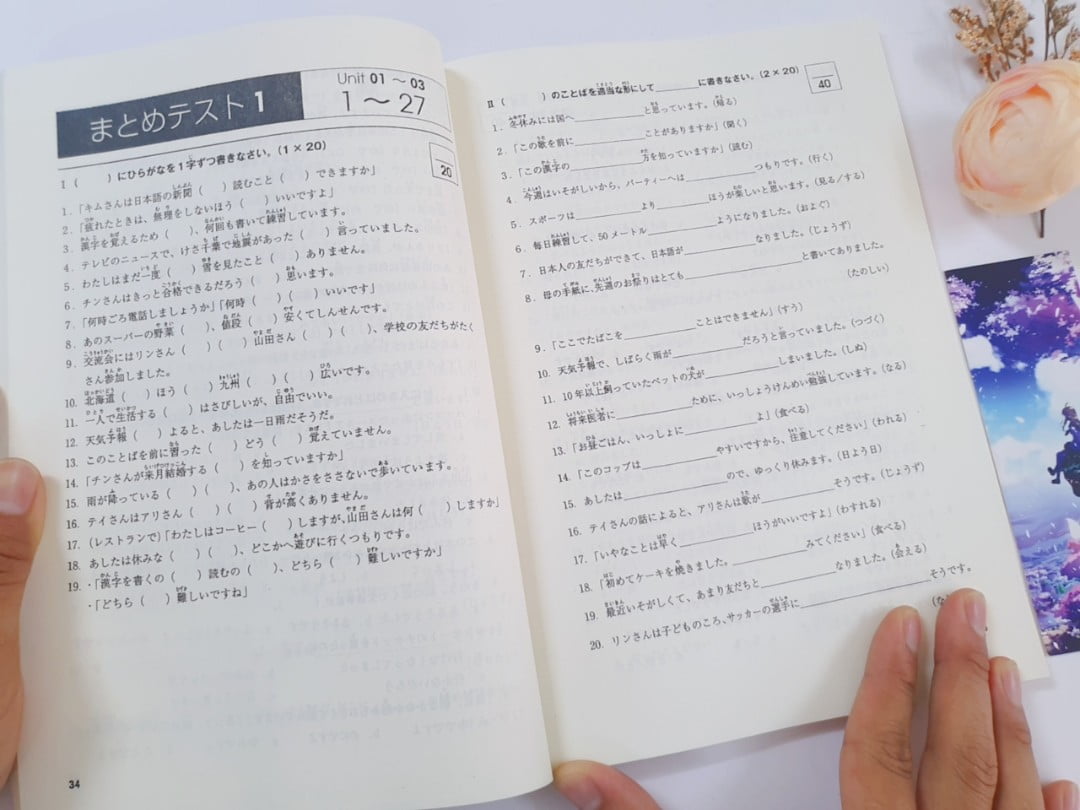 まとめテスト1
Unit 01 〜 03
1〜27
I （　）にひらがなを1字ずつ書きなさい。（1×20）
20
1. 「キムさんは日本語の新聞（　）読むこと（　）できますか」
2. 「疲れたときは、無理をしないほう（　）いいですよ」
3. 漢字を覚えるため（　）、何回も書いて練習しています。
4. テレビのニュースで、けさ千葉で地震があった（　）言っていました。
5. わたしはまだ一度（　）雪を見たこと（　）ありません。
6. チンさんはきっと合格できるだろう（　）思います。
7. 「何時ごろ電話しましょうか」「何時（　）（　）いいです」
8. あのスーパーの野菜（　）、値段（　）安くてしんせんです。
9. 交流会にはリンさん（　）（　）山田さん（　）（　）、学校の友だちがたく
さん参加しました。
10. 北海道（　）ほう（　）九州（　）（　）広いです。
11. 一人で生活する（　）はさびしいが、自由でいい。
12. 天気予報（　）よると、あしたは一日雨だそうだ。
13. このことばを前に習った（　）どう（　）覚えていません。
14. 「チンさんが来月結婚する（　）を知っていますか」
15. 雨が降っている（　）（　）、あの人はかさをささないで歩いています。
16. テイさんはアリさん（　）（　）背が高くありません。
17. （レストランで）「わたしはコーヒー（　）しますが、山田さんは何（　）しますか」
18. あしたは休みな（　）（　）、どこかへ遊びに行くつもりです。
19. ・「漢字を書くの（　）読むの（　）、どちら（　）難しいですか」
・「どちら（　）難しいですね」
34
II （　）のことばを適当な形にして＿＿＿に書きなさい。（2×20）
40
1. 冬休みには国へ＿＿＿と思っています。（帰る）
2. 「この歌を前に＿＿＿ことがありますか」（聞く）
3. 「この漢字の＿＿＿方を知っていますか」（読む）
4. 今週はいそがしいから、パーティーへは＿＿＿つもりです。（行く）
5. スポーツは＿＿＿より＿＿＿ほうが楽しいと思います。（見る／する）
6. 毎日練習して、50メートル＿＿＿ようになりました。（およぐ）
7. 日本人の友だちができて、日本語が＿＿＿なりました。（じょうず）
8. 母の手紙に、先週のお祭りはとても＿＿＿と書いてありました。
（たのしい）
9. 「ここでたばこを＿＿＿ことはできません」（すう）
10. 天気予報で、しばらく雨が＿＿＿だろうと言っていました。（つづく）
11. 10年以上飼っていたペットの犬が＿＿＿しまいました。（しぬ）
12. 将来医者に＿＿＿ために、いっしょうけんめい勉強しています。（なる）
13. 「お昼ごはん、いっしょに＿＿＿よ」（食べる）
14. 「このコップは＿＿＿やすいですから、注意してください」（われる）
15. あしたは＿＿＿ので、ゆっくり休みます。（日よう日）
16. テイさんの話によると、アリさんは歌が＿＿＿そうです。（じょうず）
17. 「いやなことは早く＿＿＿ほうがいいですよ」（わすれる）
18. 「初めてケーキを焼きました。＿＿＿みてください」（食べる）
19. 最近いそがしくて、あまり友だちと＿＿＿なりました。（会える）
20. リンさんは子どものころ、サッカーの選手に＿＿＿そうです。